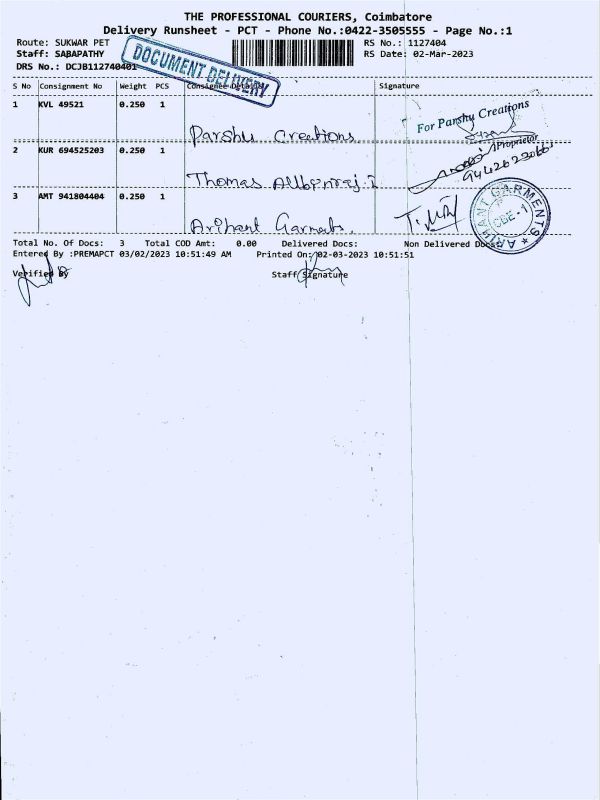 THE PROFESSIONAL COURIERS, Coimbatore
Delivery Runsheet - PCT - Phone No.:0422-3505555 - Page No.:1
Route: SUKWAR PET
RS No.: 1127404
Staff: SABAPATHY
RS Date: 02-Mar-2023
DRS No.: DCJB112740401
DOCUMENT DELIVERY
S No Consignment No Weight PCS Consignee Details Signature
1 KVL 49521 0.250 1
Parshu Creations
For Parshu Creations
Proprietor
2 KUR 694525203 0.250 1
Thomas
3 AMT 941804404 0.250 1
Arihant Garmats.
ARIHANT GARMENTS
CBE-1
Total No. Of Docs: 3 Total COD Amt: 0.00 Delivered Docs: Non Delivered Docs:
Entered By :PREMAPCT 03/02/2023 10:51:49 AM Printed On: 02-03-2023 10:51:51
Verified By Staff Signature